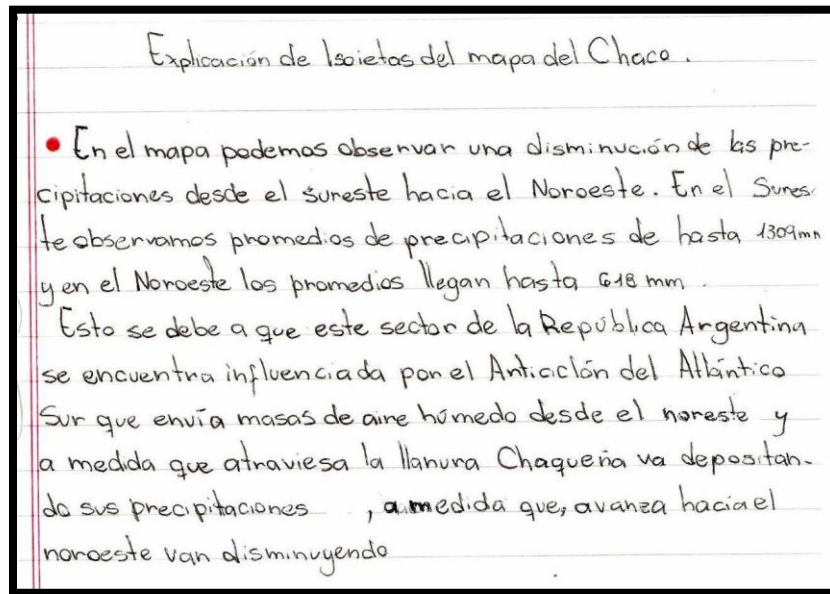 Explicación de Isoietas del mapa del Chaco.
• En el mapa podemos observar una disminución de las pre-
cipitaciones desde el sureste hacia el Noroeste. En el Sures-
te observamos promedios de precipitaciones de hasta 1309mm
y en el Noroeste los promedios llegan hasta 618 mm.
Esto se debe a que este sector de la República Argentina
se encuentra influenciada por el Anticiclón del Atlántico
Sur que envía masas de aire húmedo desde el noreste y
a medida que atraviesa la llanura Chaqueña va depositan-
do sus precipitaciones , a medida que, avanza hacia el
noroeste van disminuyendo